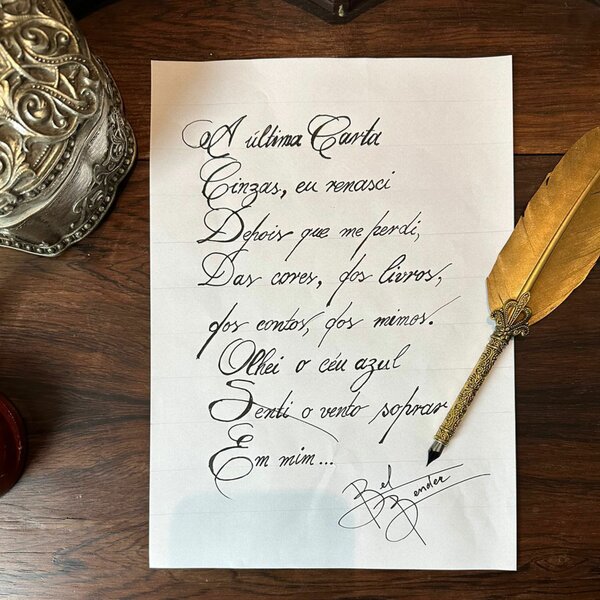 A última Carta
Cinzas, eu renasci
Depois que me perdi,
Das cores, dos livros,
dos contos, dos mimos.
Olhei o céu azul
Senti o vento soprar
Em mim...
Bel
Bender